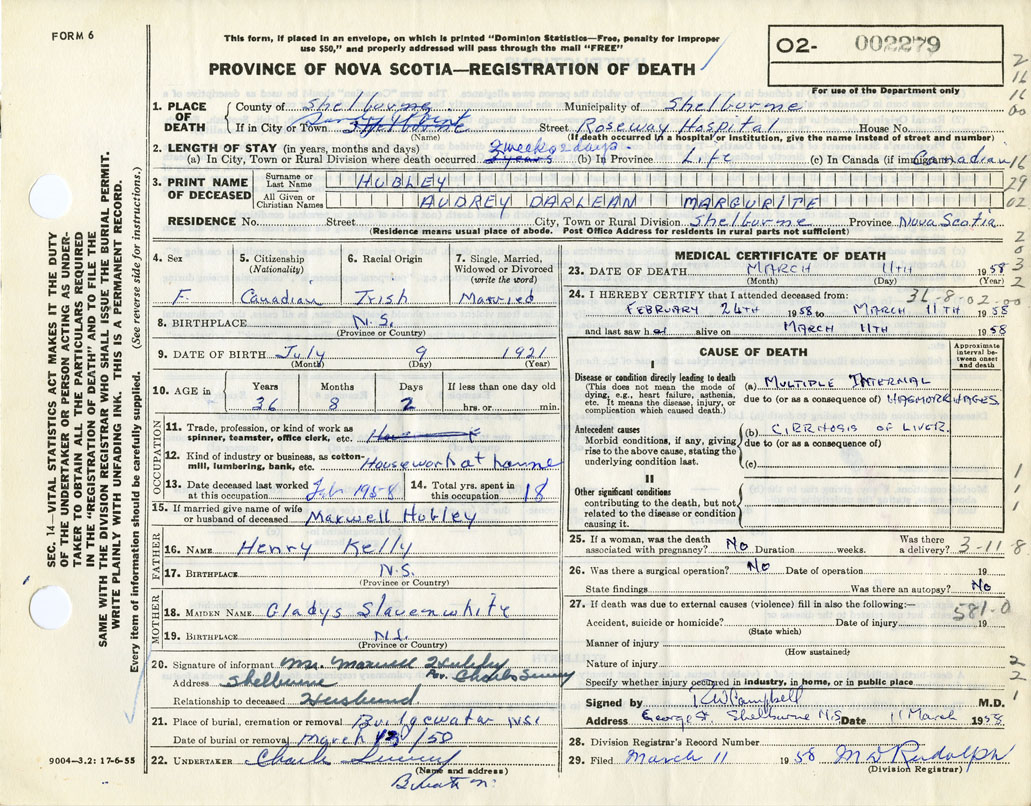 FORM 6
This form, if placed in an envelope, on which is printed "Dominion Statistics—Free, penalty for improper
use $50," and properly addressed will pass through the mail "FREE"
PROVINCE OF NOVA SCOTIA—REGISTRATION OF DEATH
O2- 002279
For use of the Department only
1. PLACE OF DEATH County of Shelburne Municipality of Shelburne
If in City or Town Sandy Point Shelburne Street Roseway Hospital House No.
(Name) (If death occurred in a hospital or institution, give the name instead of street and number)
2. LENGTH OF STAY (in years, months and days) 2 weeks 2 days
(a) In City, Town or Rural Division where death occurred 2 years (b) In Province Life (c) In Canada (if immigrant) Canadian
3. PRINT NAME OF DECEASED Surname or Last Name HUBLEY
All Given or Christian Names AUDREY DARLEAN MARGURITE
RESIDENCE No. Street City, Town or Rural Division Shelburne Province Nova Scotia
(Residence means usual place of abode. Post Office Address for residents in rural parts not sufficient)
4. Sex F.
5. Citizenship (Nationality) Canadian
6. Racial Origin Irish
7. Single, Married, Widowed or Divorced (write the word) Married
8. BIRTHPLACE N.S.
(Province or County)
9. DATE OF BIRTH July 9 1921
(Month) (Day) (Year)
10. AGE in Years 36 Months 8 Days 2 If less than one day old hrs. or min.
OCCUPATION
11. Trade, profession, or kind of work as
spinner, teamster, office clerk, etc.
12. Kind of industry or business, as cotton-
mill, lumbering, bank, etc. Housework at home
13. Date deceased last worked
at this occupation Feb 1958
14. Total yrs. spent in
this occupation 18
15. If married give name of wife
or husband of deceased Maxwell Hubley
FATHER
16. NAME Henry Kelly
17. BIRTHPLACE N.S.
(Province or County)
MOTHER
18. MAIDEN NAME Gladys Slavenwhite
19. BIRTHPLACE N.S.
(Province or County)
20. Signature of informant Mr. Maxwell Hubley
Per. Charles
Address Shelburne
Relationship to deceased Husband
21. Place of burial, cremation or removal Bridgewater N.S.
Date of burial or removal March 13/58
22. UNDERTAKER Charles
(Name and address)
9004—3.2: 17-6-55
MEDICAL CERTIFICATE OF DEATH
23. DATE OF DEATH MARCH 11TH 1958
(Month) (Day) (Year)
36-8-02-00
24. I HEREBY CERTIFY that I attended deceased from:
FEBRUARY 24TH 1958 to MARCH 11TH 1958
and last saw her alive on MARCH 11TH 1958
CAUSE OF DEATH
Approximate interval between onset and death
I
Disease or condition directly leading to death
(This does not mean the mode of
dying, e.g., heart failure, asthenia,
etc. It means the disease, injury, or
complication which caused death.)
(a) MULTIPLE INTERNAL
due to (or as a consequence of) HAEMORRHAGES
Antecedent causes
Morbid conditions, if any, giving
rise to the above cause, stating the
underlying condition last.
(b) CIRRHOSIS OF LIVER.
due to (or as a consequence of)
(c)
II
Other significant conditions
contributing to the death, but not
related to the disease or condition
causing it.
25. If a woman, was the death
associated with pregnancy? No Duration weeks. Was there
a delivery? 3-11-8
26. Was there a surgical operation? No Date of operation 19
State findings Was there an autopsy? No
27. If death was due to external causes (violence) fill in also the following:— 581-0
Accident, suicide or homicide? Date of injury 19
(State which)
Manner of injury
(How sustained)
Nature of injury
Specify whether injury occurred in industry, in home, or in public place
Signed by R W Campbell M.D.
Address George St. Shelburne N.S. Date 11 March 1958
28. Division Registrar's Record Number
29. Filed March 11 1958 M D Rudolph
(Division Registrar)
SEC. 14—VITAL STATISTICS ACT MAKES IT THE DUTY
OF THE UNDERTAKER OR PERSON ACTING AS UNDER-
TAKER TO OBTAIN ALL THE PARTICULARS REQUIRED
IN THE "REGISTRATION OF DEATH" AND TO FILE THE
SAME WITH THE DIVISION REGISTRAR WHO SHALL ISSUE THE BURIAL PERMIT.
WRITE PLAINLY WITH UNFADING INK. THIS IS A PERMANENT RECORD.
Every item of information should be carefully supplied. (See reverse side for instructions.)